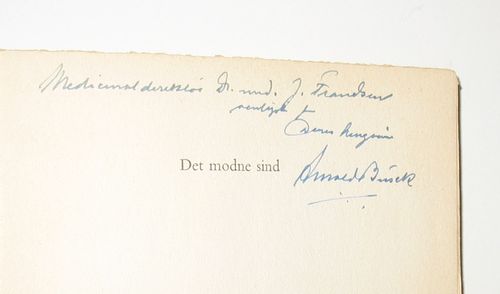 Medicinaldirektør Dr. med. J. Frandsen
venligst fr
Deres hengivne
Det modne sind
Arnold Busck